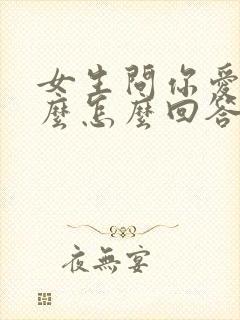 女生問你愛
麼怎麼回答
夜無宴